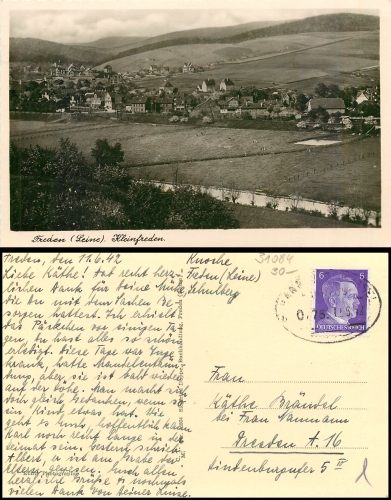 Freden (Leine). Kleinfreden.
Freden, den 11.6.42
Liebe Käthe! Hab recht herz-
lichen Dank für Deine Mühe,
die Du mit dem Sachen Be-
sorgen hattest. Ich erhielt
das Päckchen vor einigen Ta-
gen, Du hast alles so schön
erledigt. Diese Tage war Inge
krank, hatte Mandelentzün-
dung, aber sie ist bald wieder
auf der Höhe. Man macht sich
doch gleich Gedanken, wenn so
ein Kind, etwas hat. Wie
geht es Euch, hoffentlich kann
Karl noch recht lange in der
Heimat sein, gestern schrieb
Albert, er ist am
gewesen. Euch allen
herzliche Grüße u. nochmals
vielen Dank von Deiner
Knoche
Freden (Leine)
Schulberg
31084
30-
6 6
DEUTSCHES REICH
Frau
Käthe Bründel
bei Frau Naumann
Dresden A. 16
Lindenburgufer 5 III
1